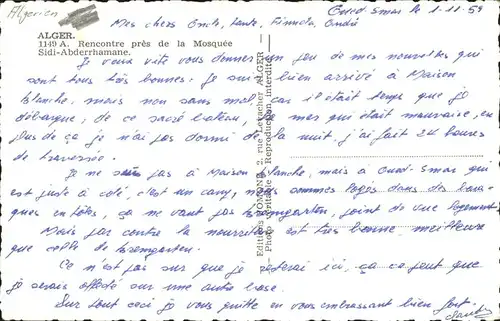 Algerien
Oued Smar le 1.11.59
Mes chers Oncle, tante, André
ALGER.
1149 A. Rencontre près de la Mosquée
Sidi-Abderrhamane.
Je veux vite vous donner un peu de mes nouvelles qui
sont très bonnes. Je suis bien arrivé à Maison
blanche, mais non sans mal, car il était temps que je
débarque, de ce sacré bateau, de mer qui était mauvaise, en
plus de ça je n'ai pas dormi de la nuit, j'ai fait 24 heures
de traversée.
Je ne suis pas à Maison blanche, mais à Oued-Smar qui
est juste à côté, c'est un camp, nous sommes logés dans des bara-
ques en tôles, ça ne vaut pas Bremgarten, point de vue logement
Mais par contre la nourriture est très bonne meilleure
que celle de Bremgarten.
Ce n'est pas sur que je resterai ici, ça ce peut que
je serais affecté sur une autre base.
Sur tout ceci je vous quitte en vous embrassant bien fort.
Editions JOMONE, 2, rue Letellier ALGER -
- Photo véritable - Reproduction interdite -